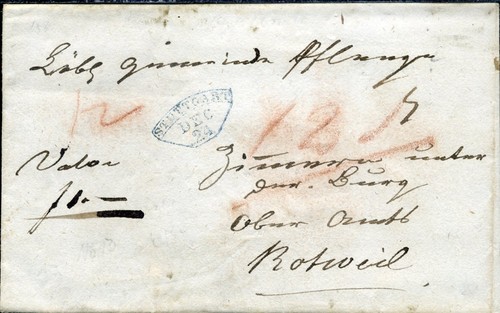 Löbl gemeinde Pflenge
STUTTGART
DEC
24
12
Valor
f 1.—
Zimmern unter
der Burg
Ober Amts
Rotweil